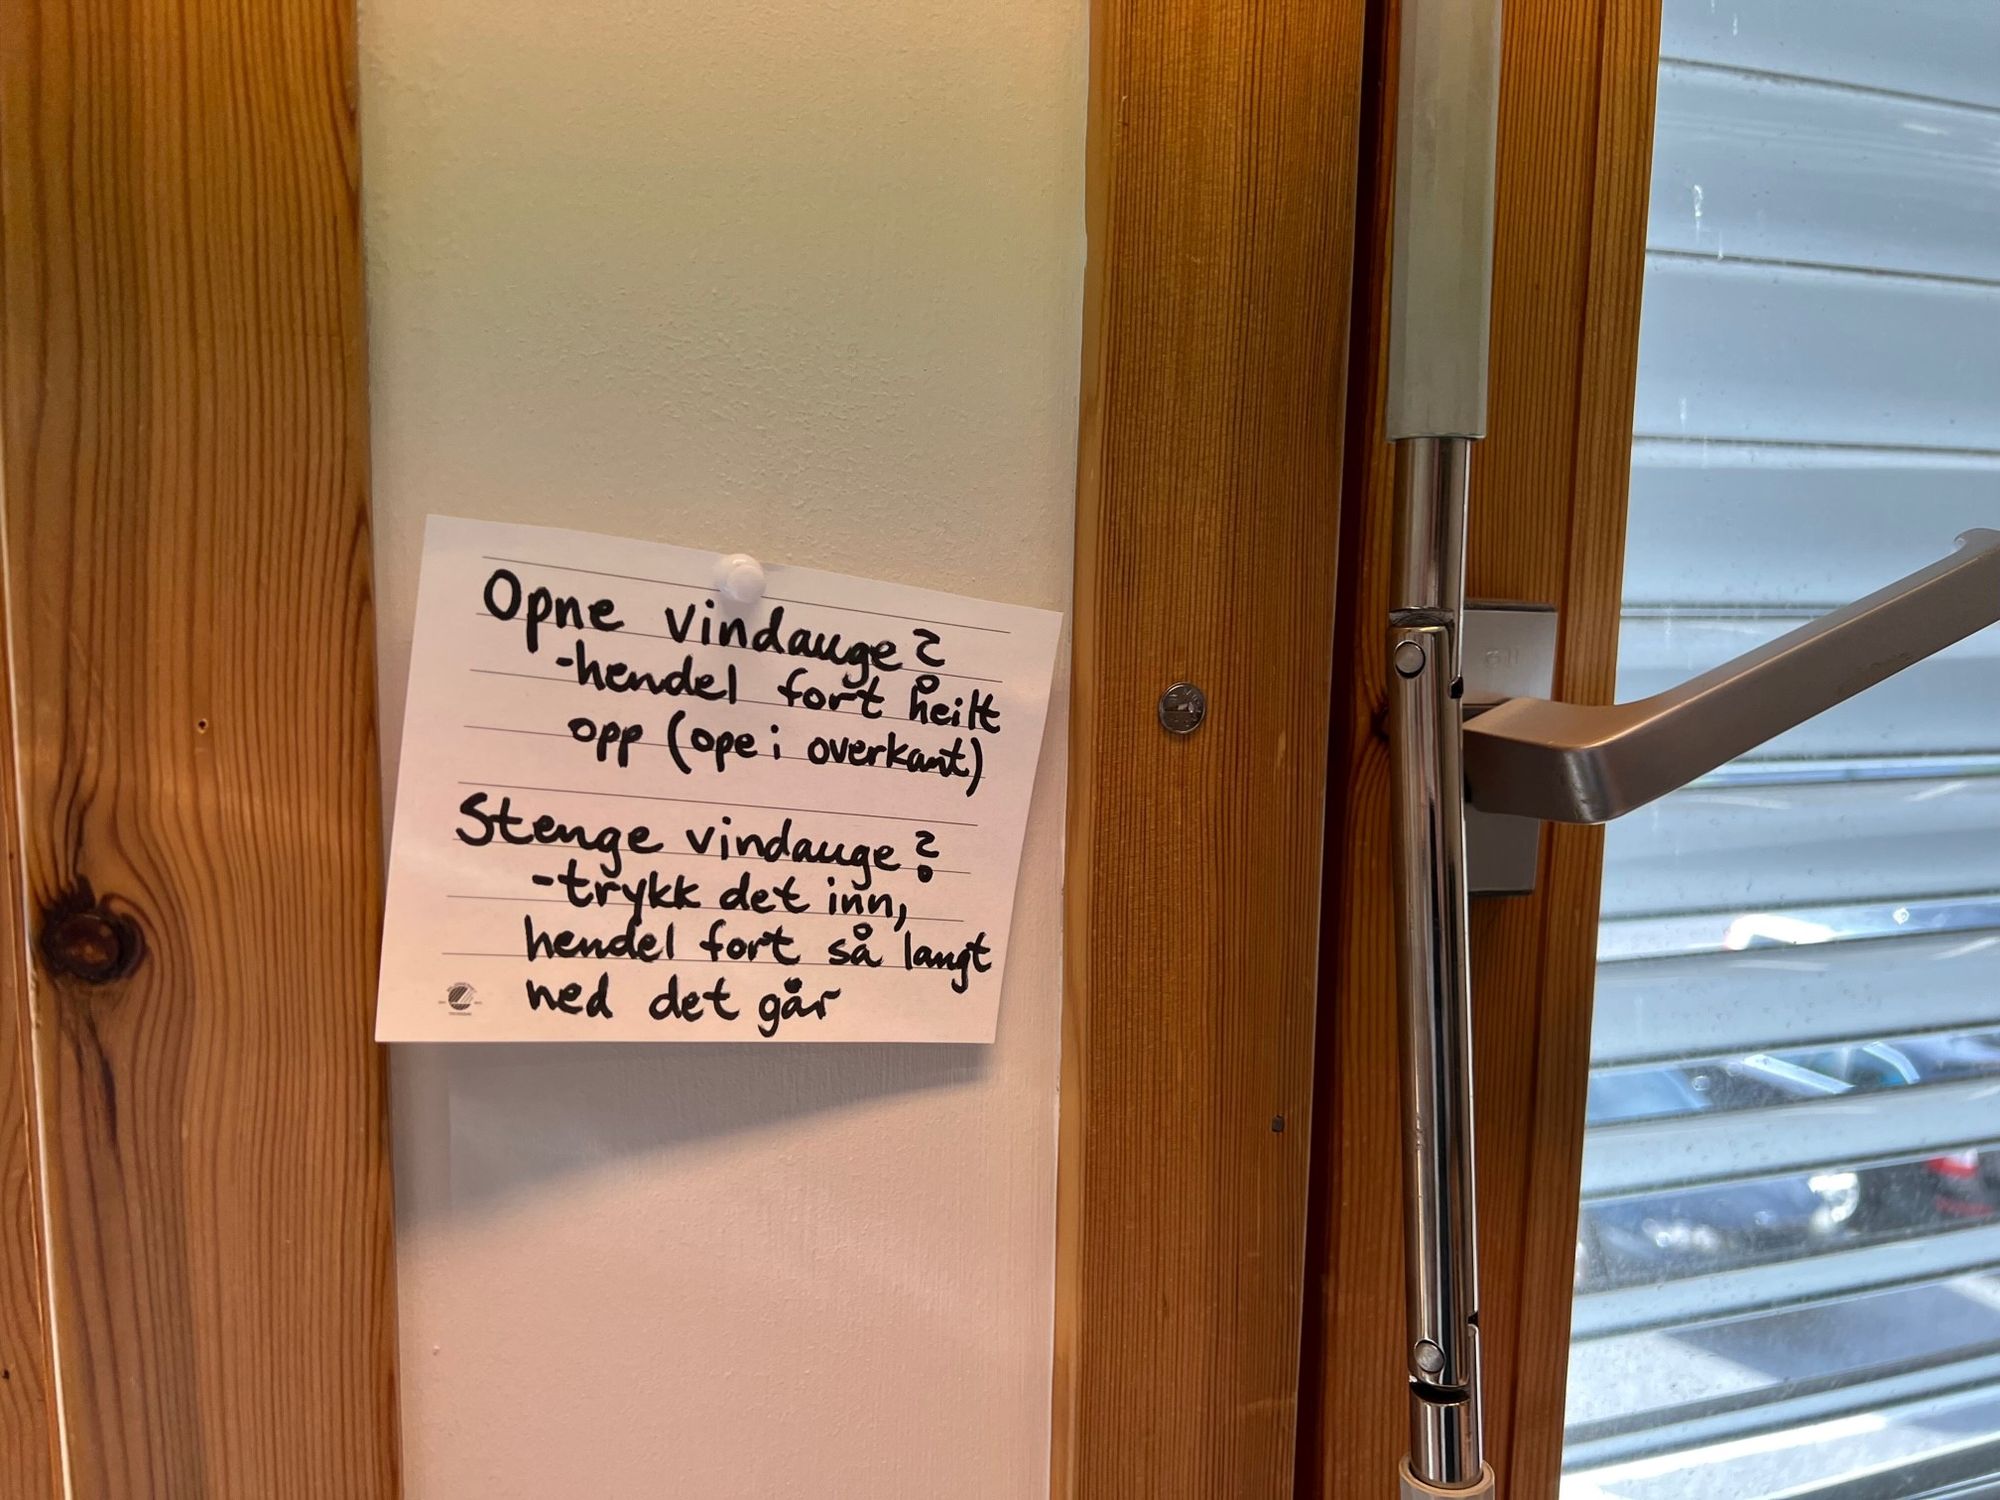 Opne vindauge?
-hendel fort heilt
opp (ope i overkant)
Stenge vindauge?
-trykk det inn,
hendel fort så langt
ned det går